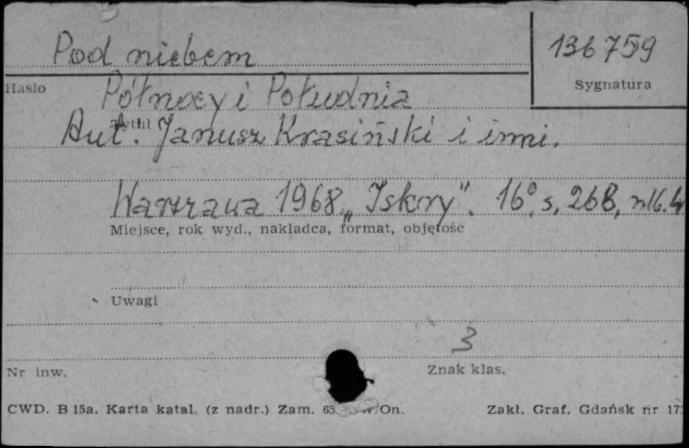 Pod niebem
136759
Hasło
Sygnatura
Północy i Południa
Tytuł
Aut. Janusz Krasiński i inni.
Warszawa 1968 „Iskry". 16°, s. 268,
Miejsce, rok wyd., nakładca, format, objętość
Uwagi
3
Nr inw.
Znak klas.
CWD. B 15a. Karta katal. (z nadr.) Zam. On.
Zakł. Graf. Gdańsk nr